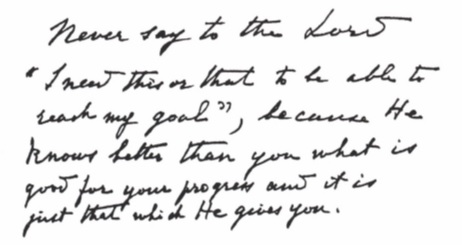 Never say to the Lord
"I need this or that to be able to
reach my goal", because He
knows better than you what is
good for your progress and it is
just that which He gives you.